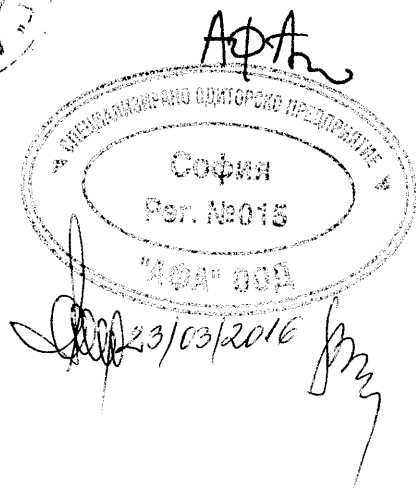 АФА
СПЕЦИАЛИЗИРАНО ОДИТОРСКО ПРЕДПРИЯТИЕ
София
Рег. №015
"АФА" ООД
23/03/2016